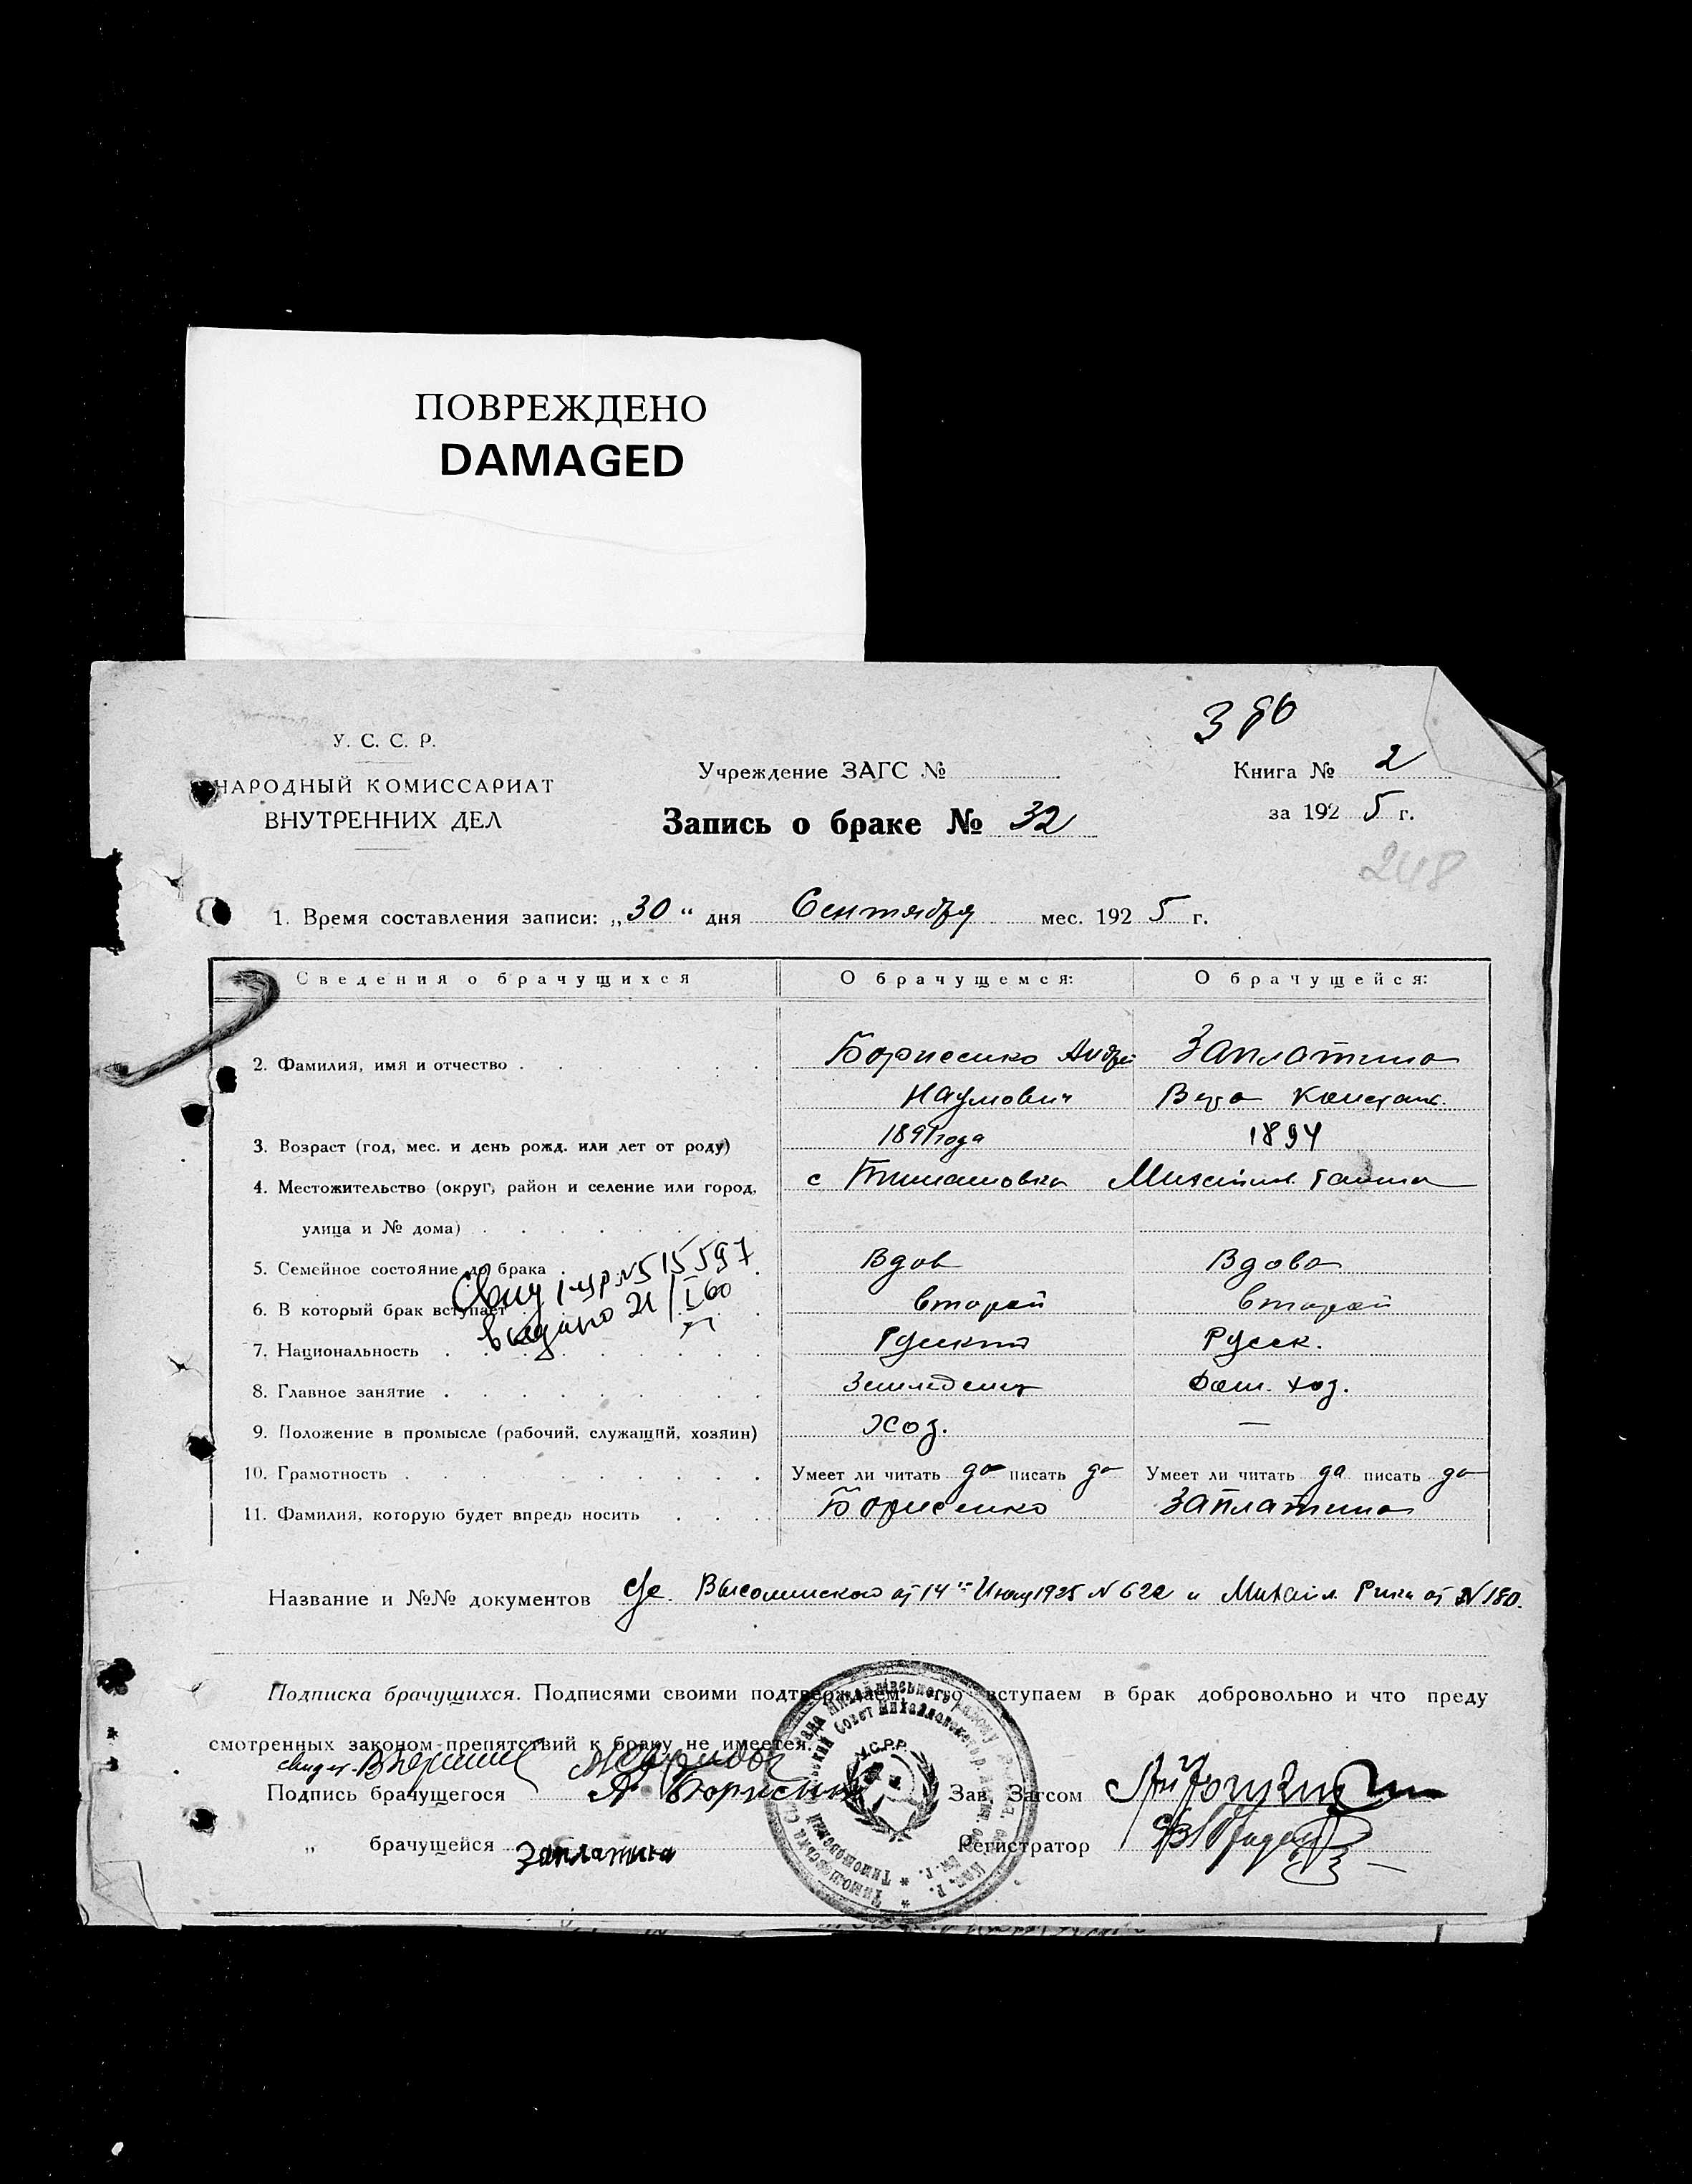 ПОВРЕЖДЕНО
DAMAGED
390
У. С. С. Р.
НАРОДНЫЙ КОМИССАРИАТ
ВНУТРЕННИХ ДЕЛ
Учреждение ЗАГС №
Книга № 2
за 1925 г.
Запись о браке № 32
248
1. Время составления записи: „30“ дня Сентября мес. 1925 г.
Сведения о брачущихся О брачущемся: О брачущейся:
2. Фамилия, имя и отчество Борисенко Андрей Заплатина
Наумович Вера Констант.
3. Возраст (год, мес. и день рожд. или лет от роду) 1891 года 1894
4. Местожительство (округ, район и селение или город, с Тимашовка Михайл.
улица и № дома)
5. Семейное состояние до брака Вдов Вдова
6. В который брак вступает второй второй
7. Национальность Русский Русск.
8. Главное занятие Земледелец Дом. хоз.
9. Положение в промысле (рабочий, служащий, хозяин) Хоз. —
10. Грамотность Умеет ли читать да писать да Умеет ли читать да писать да
11. Фамилия, которую будет впредь носить Борисенко Заплатина
№ 515597
выдано 21/I 60
Название и №№ документов от 14 1925 N 622 и Михайл. Рика от N 180.
Подписка брачущихся. Подписями своими подтверждаем, что вступаем в брак добровольно и что преду
смотренных законом препятствий к браку не имеется.
Подпись брачущегося А Борисенко Зав. Загсом
„ брачущейся Заплатина Регистратор